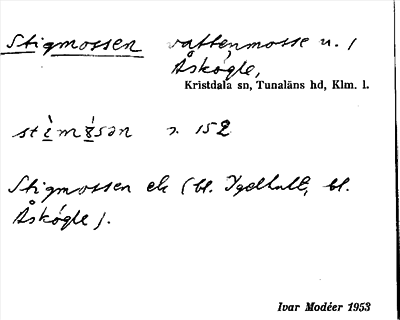 Stigmossen vattenmosse u. /
Åskögle,
Kristdala sn, Tunaläns hd, Klm. l.
s. 152
Stigmossen ek (bl. Igelhult, bl.
Åskögle).
Ivar Modéer 1953